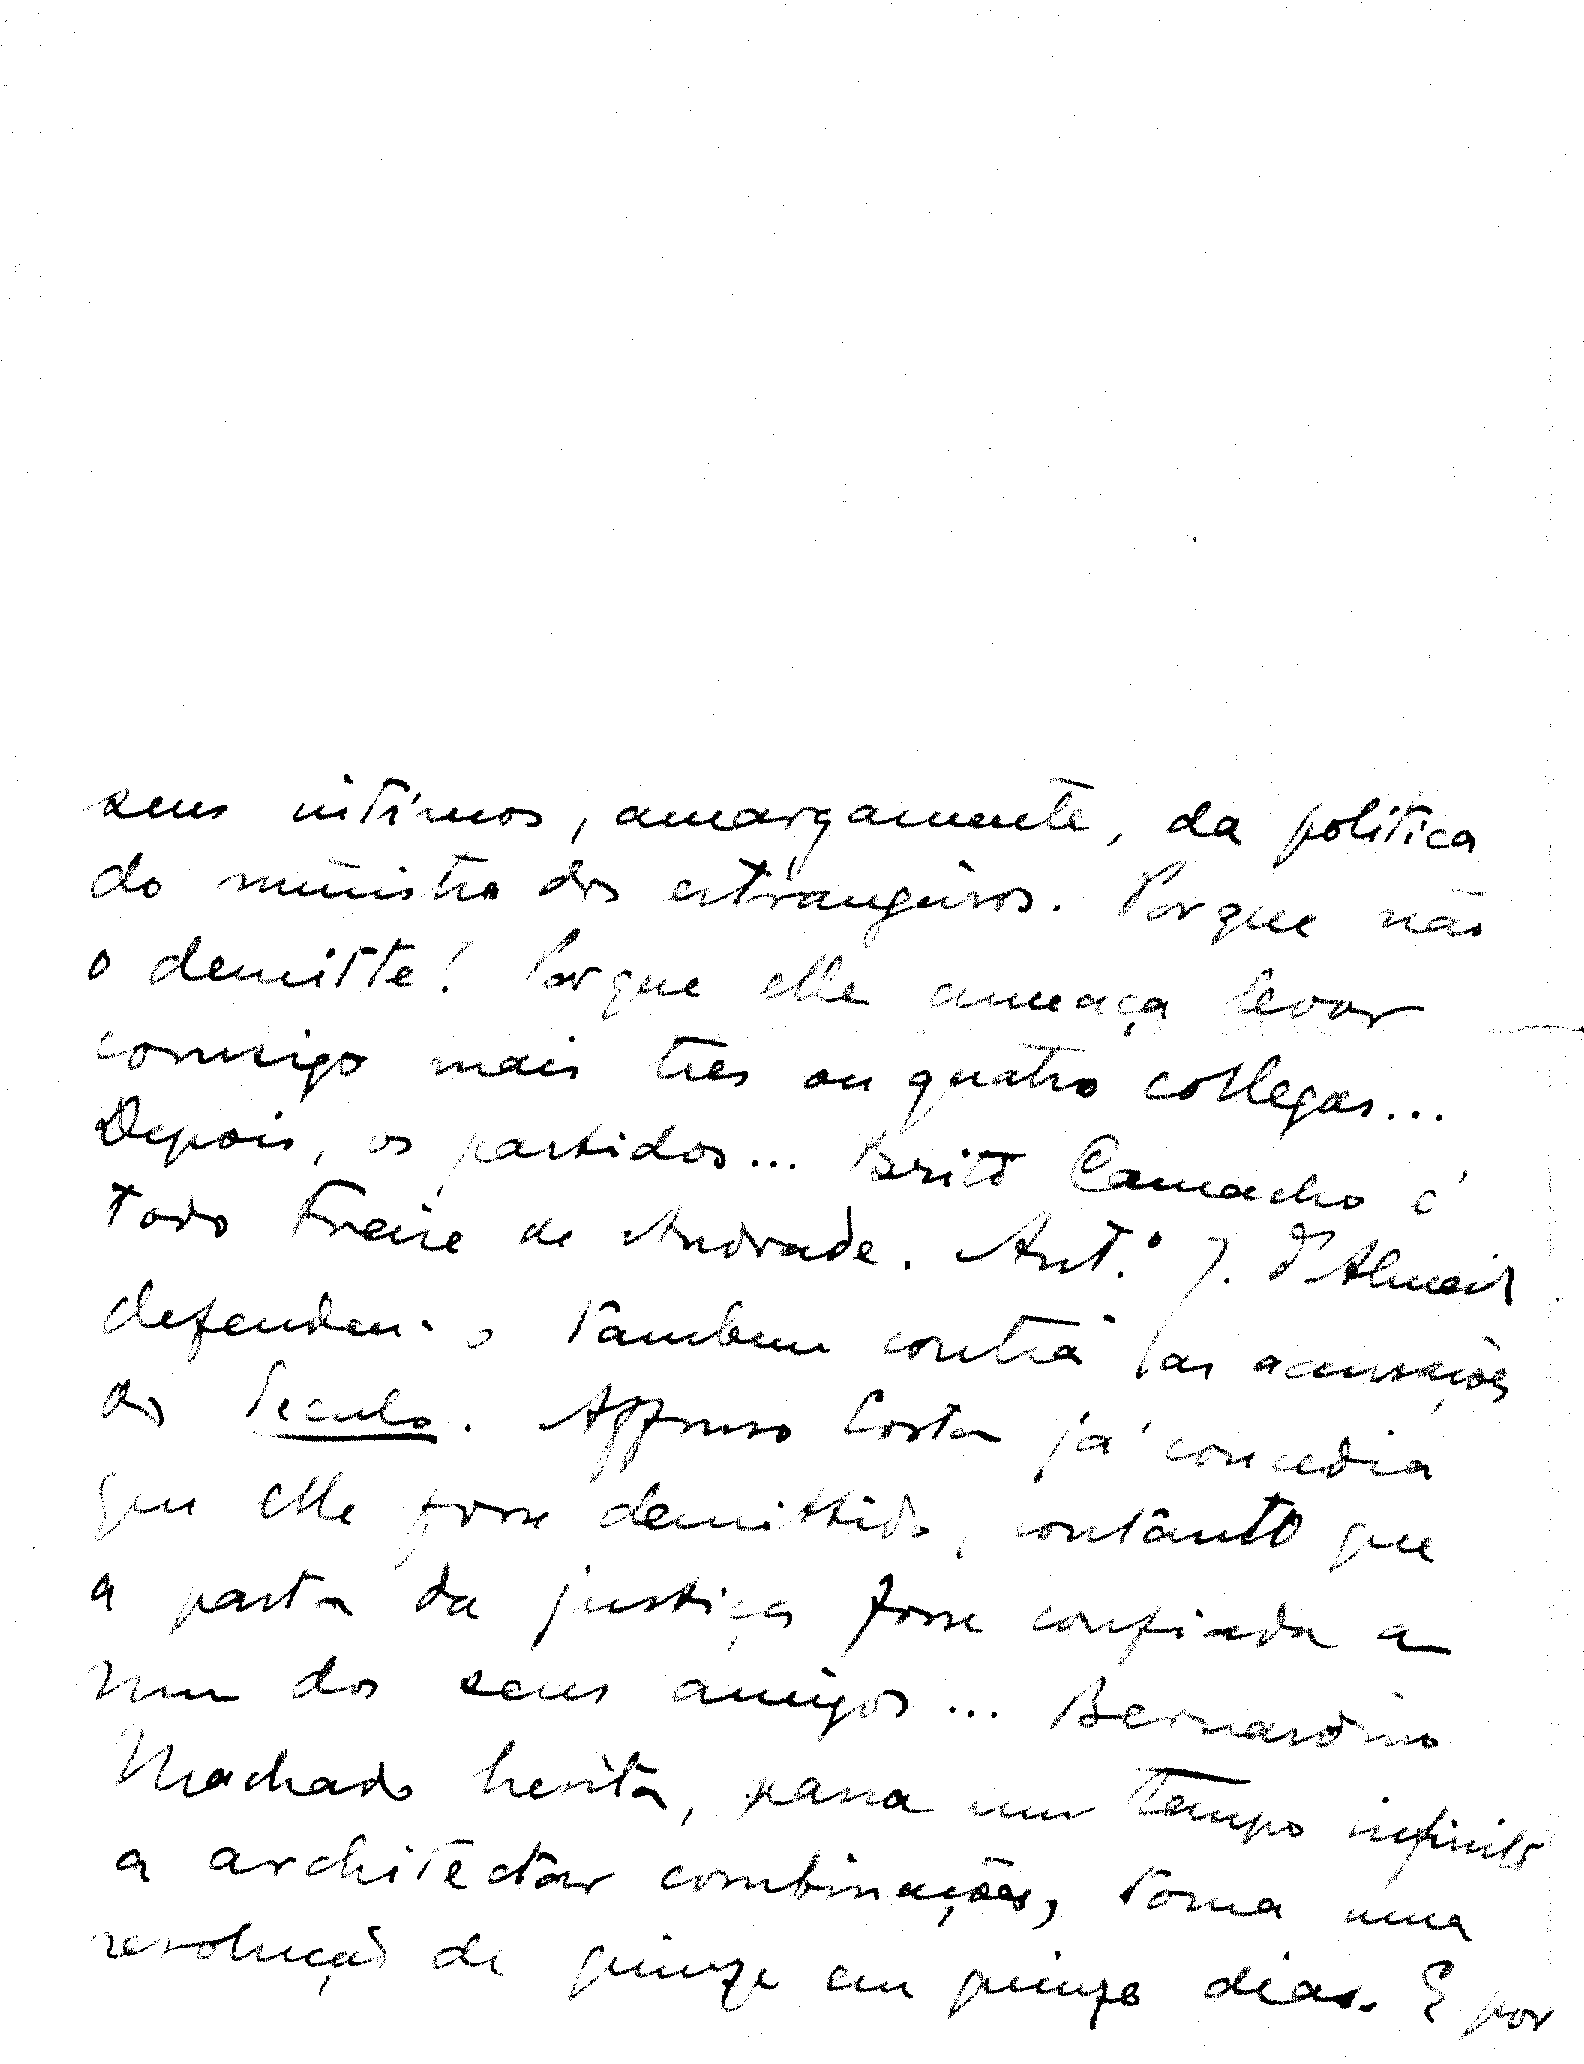 seus intimos, amargamente, da politica
do ministro dos estrangeiros. Porque não
o demitte! Porque elle ameaça levar
comsigo mais tres ou quatro collegas...
Depois, os partidos... Brito Camacho é
todo Freire de Andrade. Ant.º J. d'Almeida
defenden-o tambem contra as accusações
do Seculo. Affonso Costa já concedia
que elle fosse demittido, contanto que
a pasta da justiça fosse confiada a
um dos seus amigos... Bernardino
Machado hesita, passa um tempo infinito
a architectar combinações, toma uma
resolução de quinze em quinze dias. E por